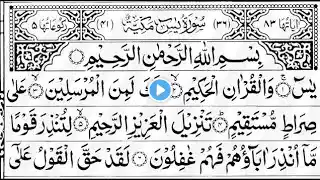 اٰيَاتُهَا ٨٣ (٣٦) سُوْرَةُ يٰسٓ مَكِّيَّةٌ (٤١) رُكُوْعَاتُهَا ٥
بِسْمِ اللّٰهِ الرَّحْمٰنِ الرَّحِيْمِ
يٰسٓ ۚ وَالْقُرْاٰنِ الْحَكِيْمِ ۙ لَمِنَ الْمُرْسَلِيْنَ ۙ عَلٰى
صِرَاطٍ مُّسْتَقِيْمٍ ؕ تَنْزِيْلَ الْعَزِيْزِ الرَّحِيْمِ ۙ لِتُنْذِرَ قَوْمًا
مَّاۤ اُنْذِرَ اٰبَآؤُهُمْ فَهُمْ غٰفِلُوْنَ لَقَدْ حَقَّ الْقَوْلُ عَلٰۤى